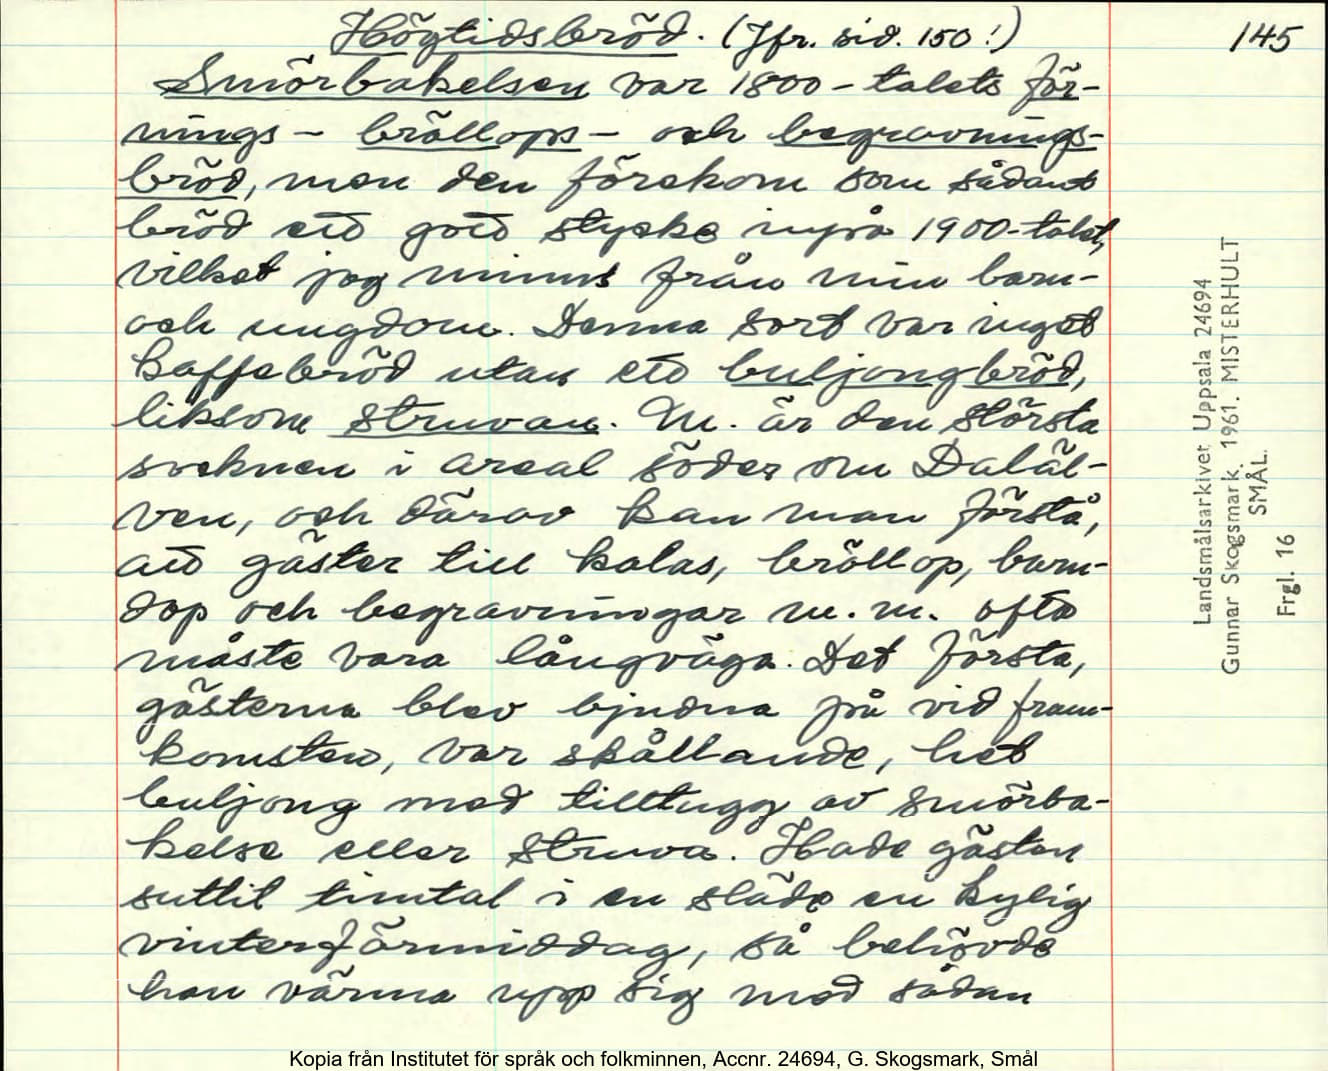 Högtidsbröd. (Jfr. sid. 150!)
145
Smörbakelsen var 1800-talets för-
nings- bröllops- och begravnings-
bröd, men den förekom som sådant
bröd ett gott stycke inpå 1900-talet,
vilket jag minns från min barn-
och ungdom. Denna sort var inget
kaffebröd utan ett buljongbröd,
liksom struvan. M. är den största
socknen i areal söder om Daläl-
ven, och därav kan man förstå,
att gäster till kalas, bröllop, barn-
dop och begravningar m.m. ofta
måste vara långväga. Det första,
gästerna blev bjudna på vid fram-
komsten, var skållande, het
buljong med tilltugg av smörba-
kelse eller struva. Hade gästen
suttit timtal i en släde en kylig
vinterförmiddag, så behövde
han värma upp sig med sådan
Landsmålsarkivet Uppsala 24694
Gunnar Skogsmark. 1961. MISTERHULT
SMÅL.
Frgl. 16
Kopia från Institutet för språk och folkminnen, Accnr. 24694, G. Skogsmark, Smål